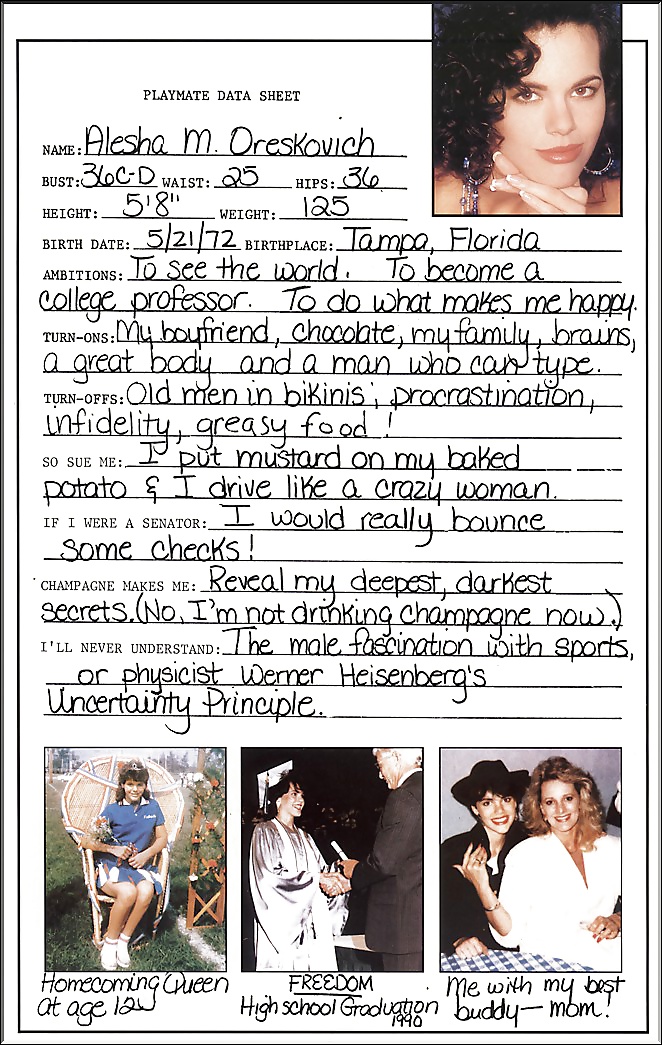 PLAYMATE DATA SHEET
NAME: Alesha M. Oreskovich
BUST: 36C-D WAIST: 25 HIPS: 36
HEIGHT: 5'8" WEIGHT: 125
BIRTH DATE: 5/21/72 BIRTHPLACE: Tampa, Florida
AMBITIONS: To see the world. To become a
college professor. To do what makes me happy.
TURN-ONS: My boyfriend, chocolate, my family, brains,
a great body and a man who can type.
TURN-OFFS: Old men in bikinis; procrastination,
infidelity, greasy food!
SO SUE ME: I put mustard on my baked
potato & I drive like a crazy woman.
IF I WERE A SENATOR: I would really bounce
some checks!
CHAMPAGNE MAKES ME: Reveal my deepest, darkest
secrets. (No, I'm not drinking champagne now.)
I'LL NEVER UNDERSTAND: The male fascination with sports,
or physicist Werner Heisenberg's
Uncertainty Principle.
Homecoming Queen
at age 12
FREEDOM
High school Graduation
1990
Me with my best
buddy—mom!